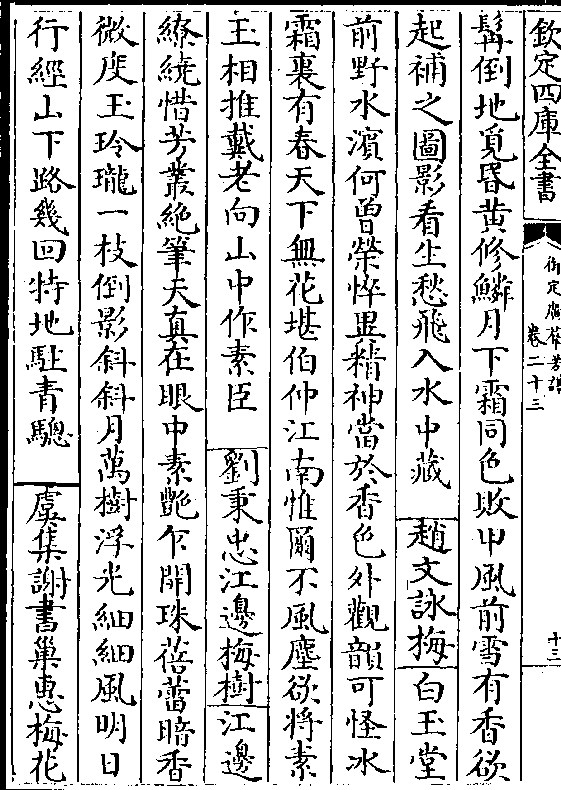 欽定四庫全書
御定廣羣芳譜
卷二十三
十三
髯倒地覓昏黃修鱗月下霜同色敗甲風前雪有香欲
起補之圖影看生愁飛入水中藏 趙文詠梅 白玉堂
前野水濱何曾榮悴異精神當於香色外觀韻可怪冰
霜裏有春天下無花堪伯仲江南惟爾不風塵欲將素
王相推戴老向山中作素臣 劉秉忠江邊梅樹 江邊
繚繞惜芳叢絶筆天真在眼中素艷乍開珠蓓蕾暗香
微度玉玲瓏一枝倒影斜斜月萬樹浮光細細風明日
行經山下路幾回特地駐青驄 虞集謝書巢惠梅花